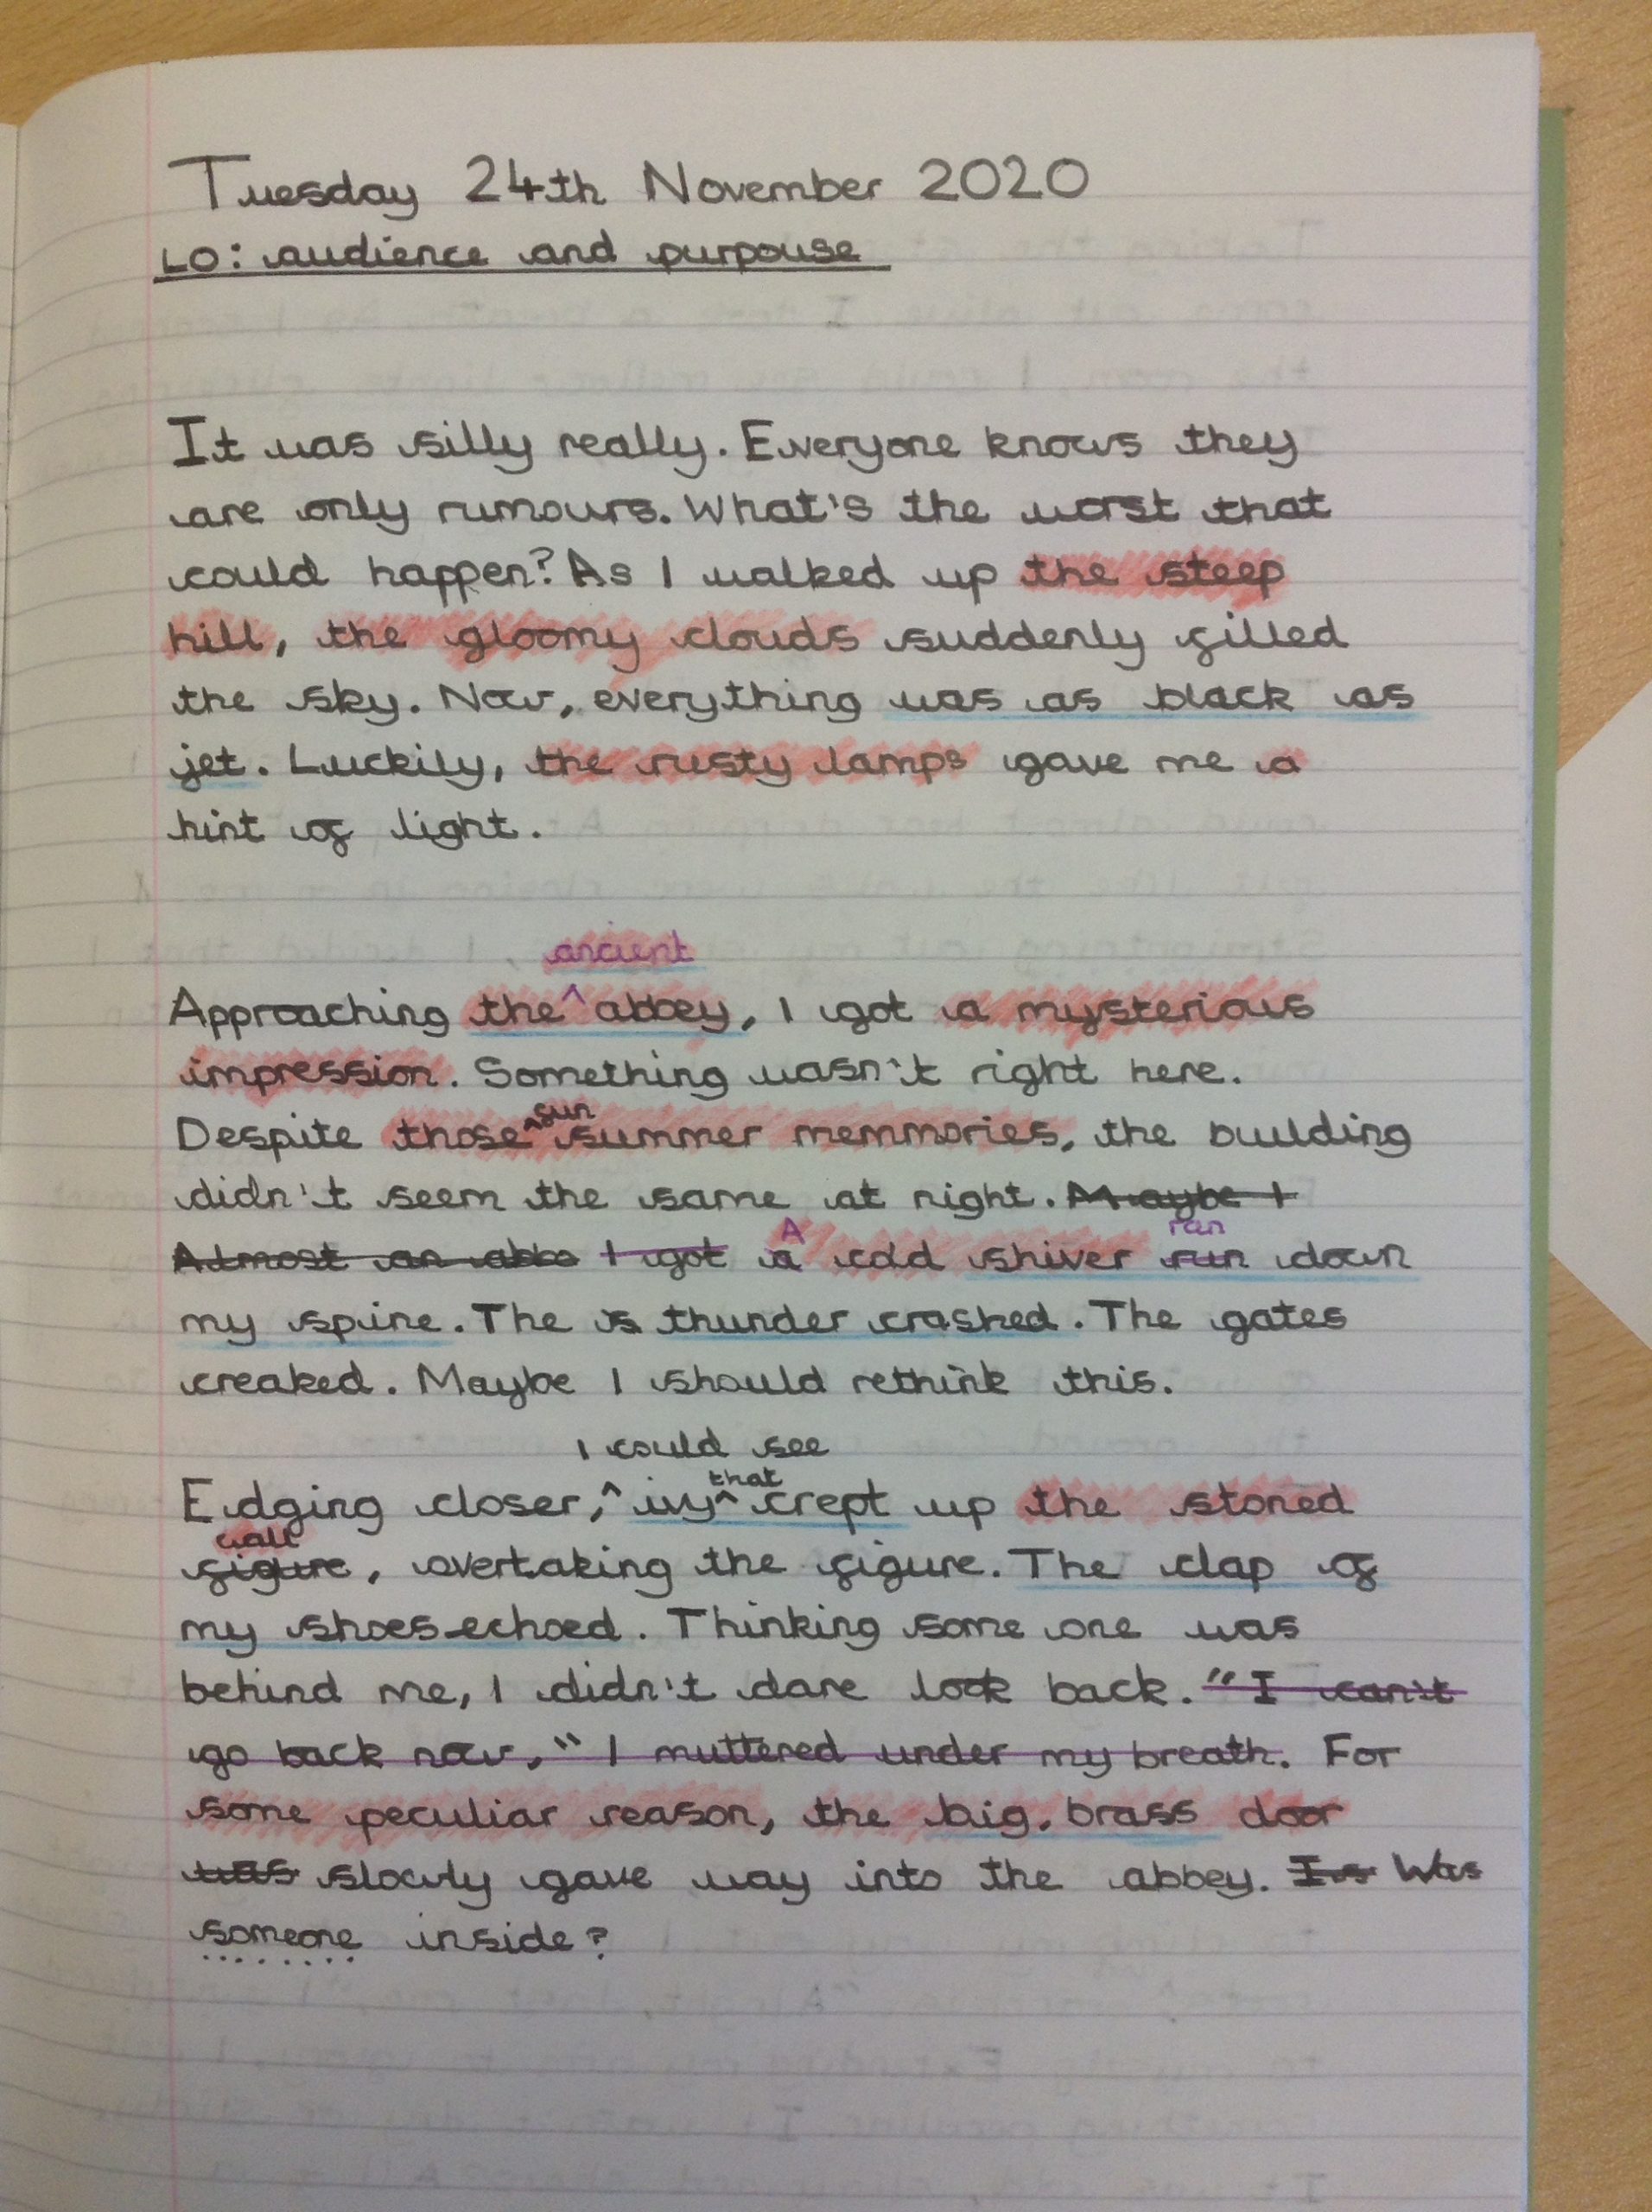 Tuesday 24th November 2020
LO: audience and purpouse
It was silly really. Everyone knows they
are only rumours. What's the worst that
could happen? As I walked up the steep
hill, the gloomy clouds suddenly filled
the sky. Now, everything was as black as
jet. Luckily, the rusty lamps gave me a
hint of light.
ancient
Approaching the ^ abbey, I got a mysterious
impression. Something wasn't right here.
sun
Despite those ^ summer memmories, the building
didn't seem the same at night. Maybe I
A ran
Almost an abbo I got a cold shiver run down
my spine. The is thunder crashed. The gates
creaked. Maybe I should rethink this.
I could see
that
Edging closer, ^ ivy ^ crept up the stoned
wall
figure, overtaking the figure. The clap of
my shoes echoed. Thinking some one was
behind me, I didn't dare look back. "I can't
go back now," I muttered under my breath. For
some peculiar reason, the big, brass door
was slowly gave way into the abbey. Is Was
someone inside?